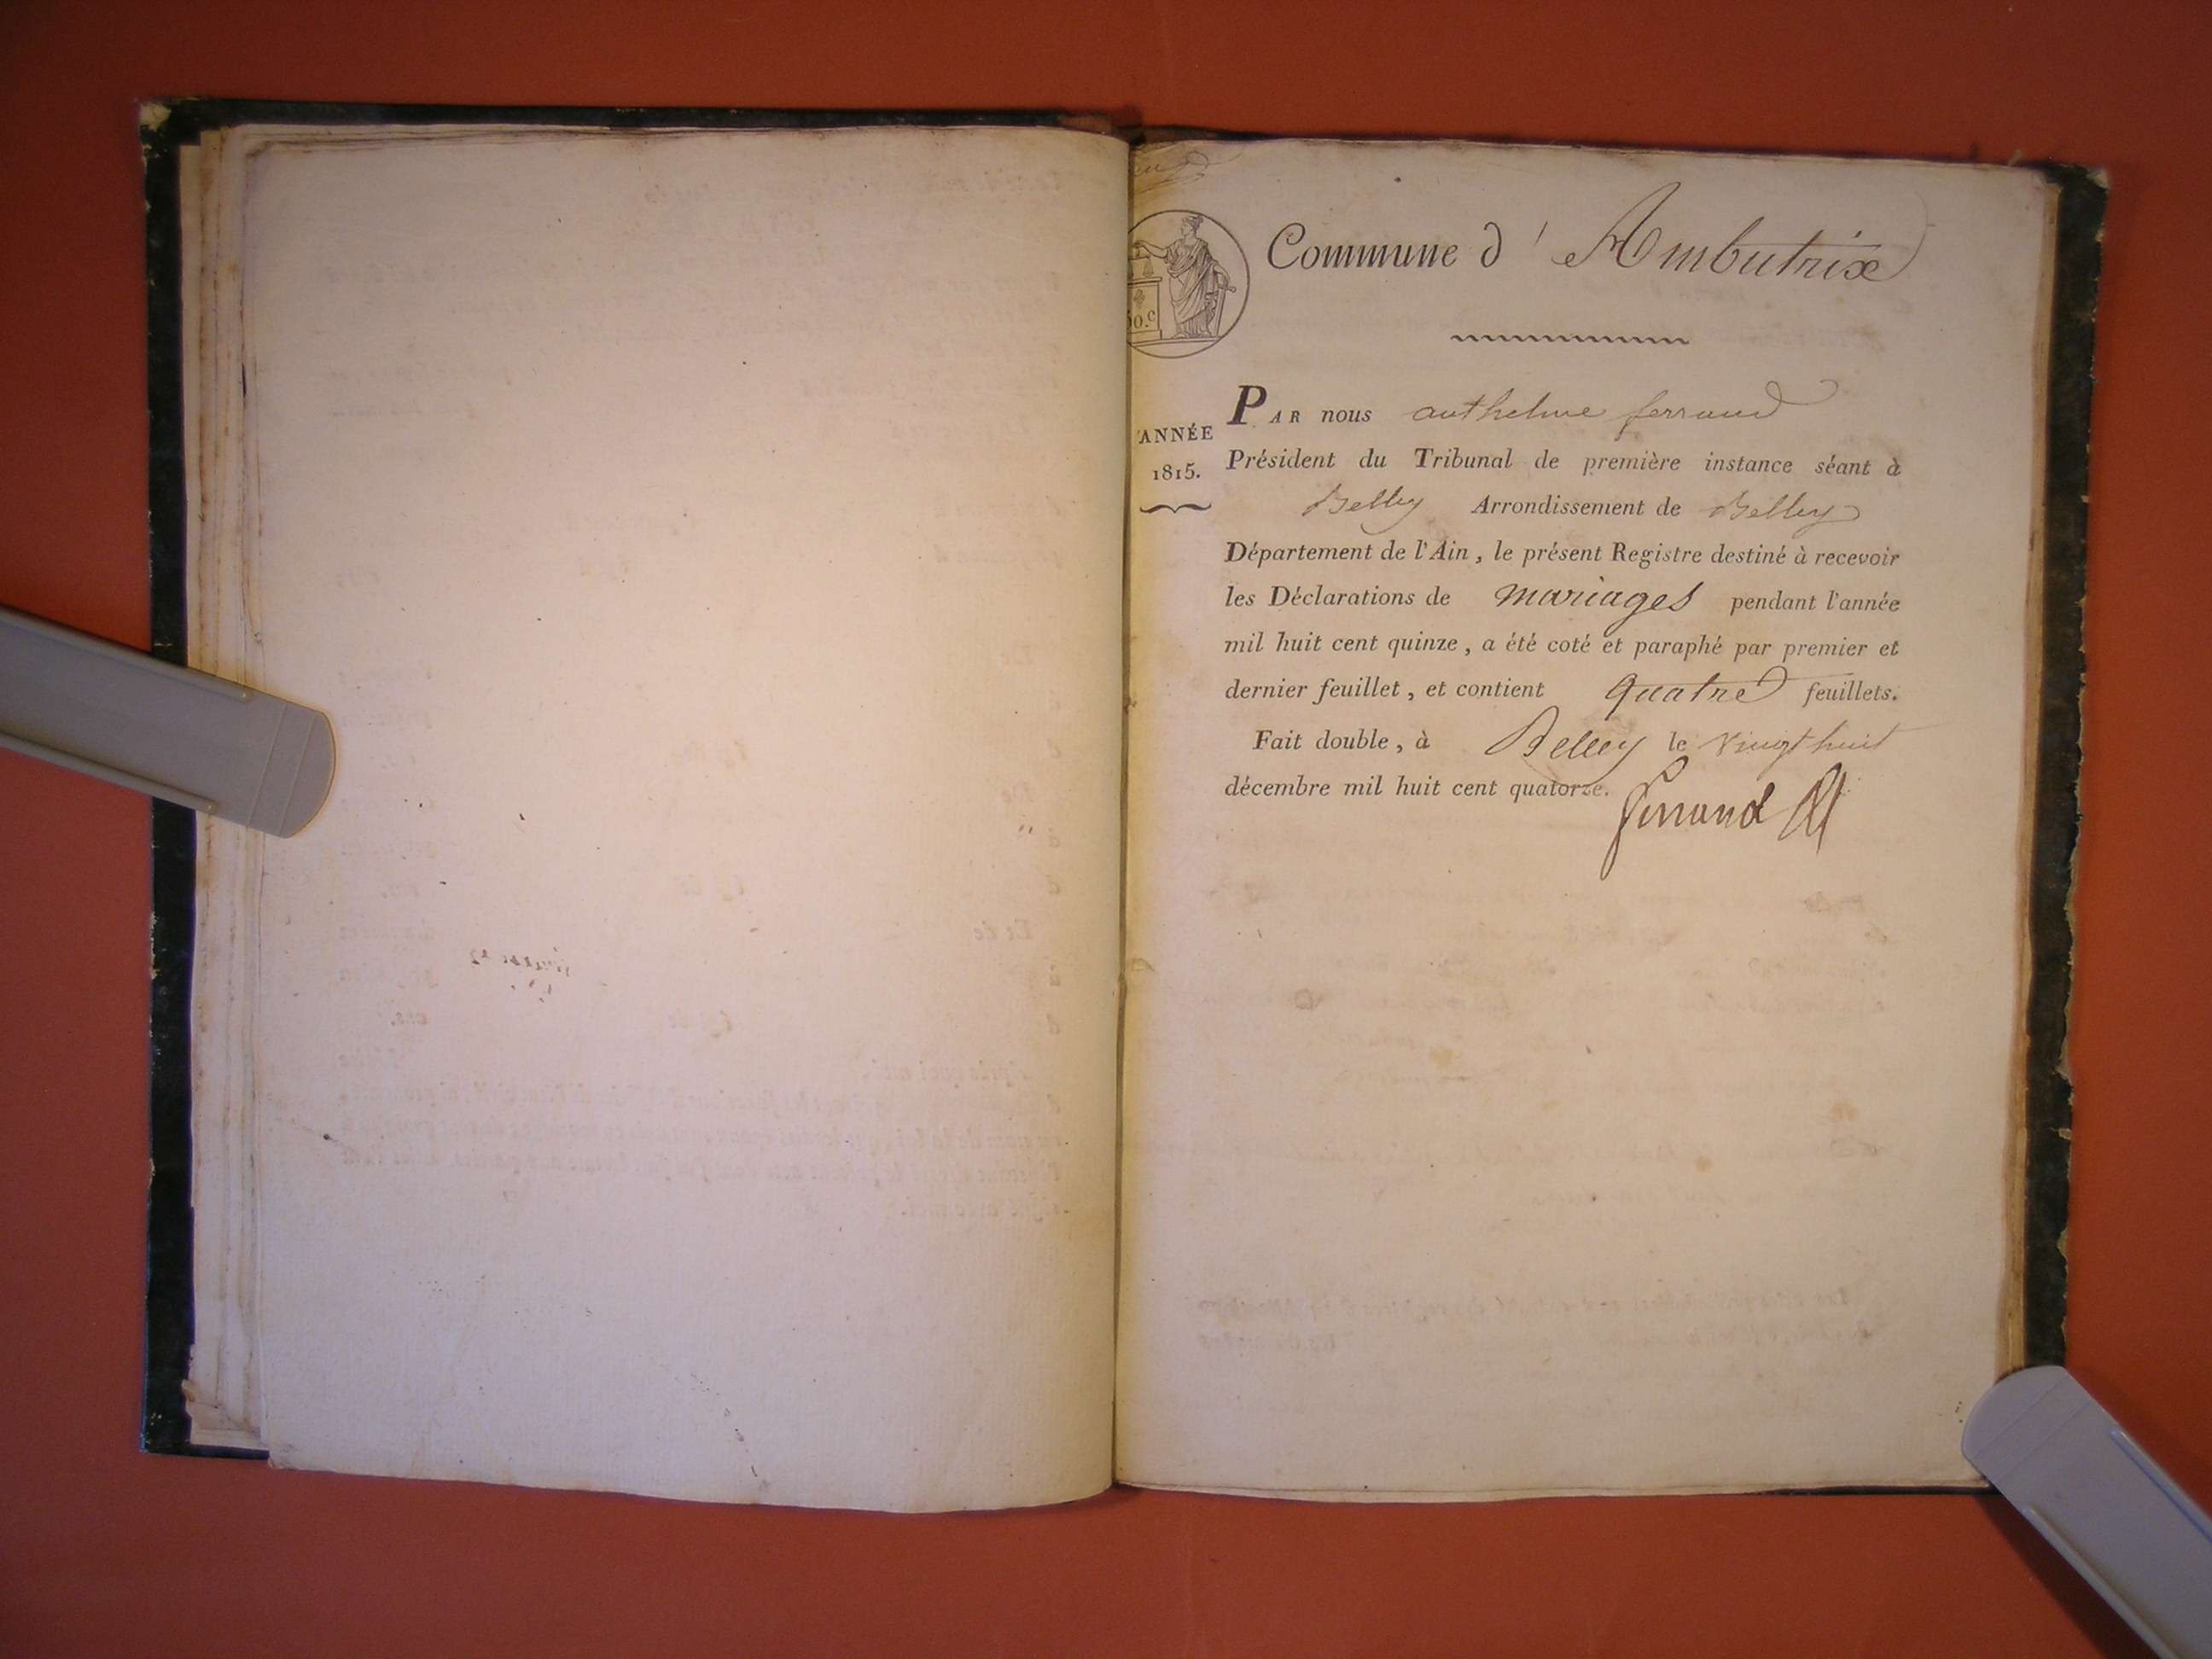 Commune d'Ambutrix
ANNÉE
1815.
PAR nous anthelme ferrand
Président du Tribunal de première instance séant à
Belley Arrondissement de Belley
Département de l'Ain, le présent Registre destiné à recevoir
les Déclarations de mariages pendant l'année
mil huit cent quinze, a été coté et paraphé par premier et
dernier feuillet, et contient quatre feuillets.
Fait double, à Belley le vingt huit
décembre mil huit cent quatorze.
ferrand